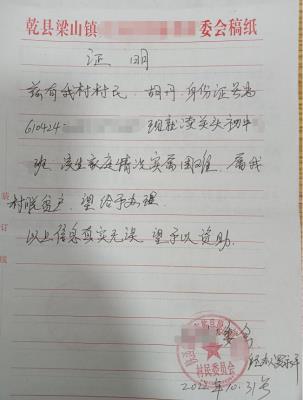 乾县梁山镇 委会稿纸
证明
兹有我村村民 胡丹 身份证号为
610424 现在读 初中
班 该生家庭情况实属困难 属我
村脱贫户 望给予办理
以上信息真实无误 望予以资助
装订线
村民委员会
2022.10.31号